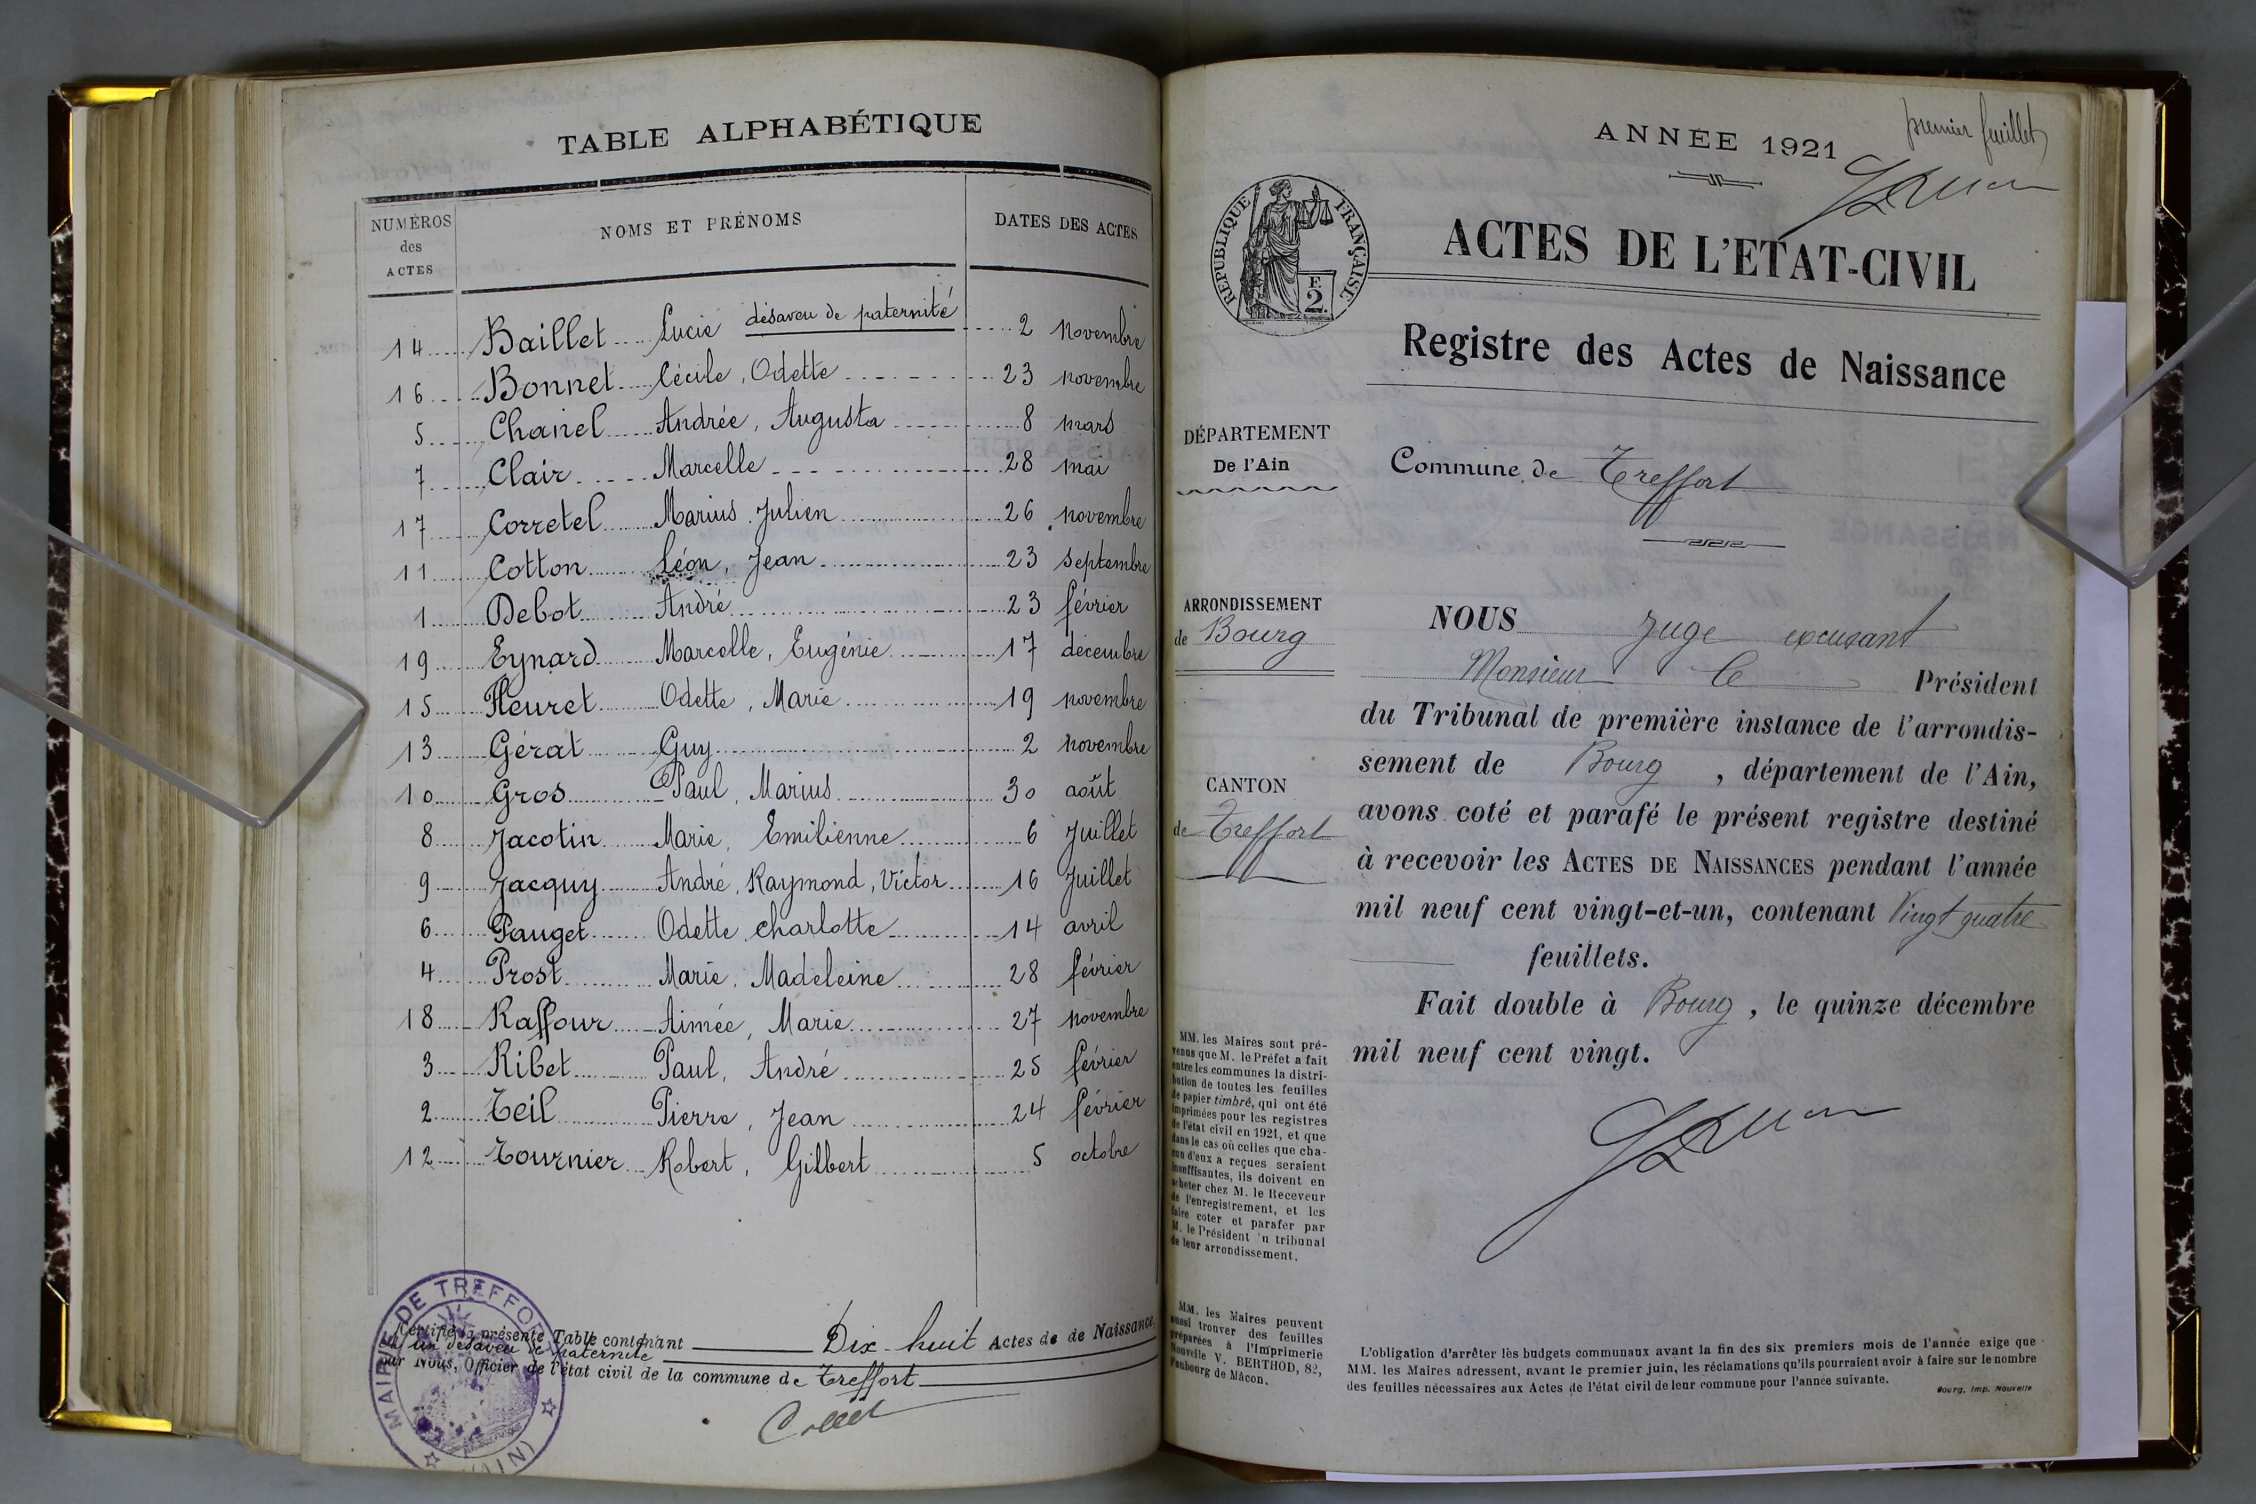 TABLE ALPHABÉTIQUE
NUMÉROS des ACTES
NOMS ET PRÉNOMS
DATES DES ACTES
14 Baillet Lucie désaveu de paternité 2 novembre
16 Bonnet Cécile, Odette 23 novembre
5 Chanel Andrée, Augusta 8 mars
7 Clair Marcelle 28 mai
17 Corretel Marius Julien 26 novembre
11 Cotton Léon, Jean 23 septembre
1 Debot André 23 février
19 Eynard Marcelle, Eugénie 17 décembre
15 Fleuret Odette, Marie 19 novembre
13 Gérat Guy 2 novembre
10 Gros Paul, Marius 30 août
8 Jacotin Marie, Emilienne 6 Juillet
9 Jacquy André, Raymond, Victor 16 Juillet
6 Pauget Odette charlotte 14 avril
4 Prost Marie, Madeleine 28 février
18 Raffour Aimée, Marie 27 novembre
3 Ribet Paul, André 25 février
2 Teil Pierre, Jean 24 février
12 Tournier Robert, Gilbert 5 octobre
Certifié la présente Table contenant Dix huit Actes de de Naissance
et un désaveu de paternité
par Nous, Officier de l'état civil de la commune de Treffort
MAIRIE DE TREFFORT (AIN)
premier feuillet
ANNÉE 1921
RÉPUBLIQUE FRANÇAISE
F
2
ACTES DE L'ETAT-CIVIL
Registre des Actes de Naissance
DÉPARTEMENT
De l'Ain
Commune de Treffort
ARRONDISSEMENT
de Bourg
CANTON
de Treffort
NOUS Juge excusant
Monsieur le Président
du Tribunal de première instance de l'arrondis-
sement de Bourg, département de l'Ain,
avons coté et parafé le présent registre destiné
à recevoir les ACTES DE NAISSANCES pendant l'année
mil neuf cent vingt-et-un, contenant Vingt quatre
feuillets.
Fait double à Bourg, le quinze décembre
mil neuf cent vingt.
MM. les Maires sont pré-
venus que M. le Préfet a fait
entre les communes la distri-
bution de toutes les feuilles
de papier timbré, qui ont été
imprimées pour les registres
de l'état civil en 1921, et que
dans le cas où celles que cha-
cun d'eux a reçues seraient
insuffisantes, ils doivent en
acheter chez M. le Receveur
de l'enregistrement, et les
faire coter et parafer par
M. le Président du tribunal
de leur arrondissement.
MM. les Maires peuvent
aussi trouver des feuilles
préparées à l'Imprimerie
Nouvelle V. BERTHOD, 82,
Faubourg de Mâcon.
L'obligation d'arrêter les budgets communaux avant la fin des six premiers mois de l'année exige que
MM. les Maires adressent, avant le premier juin, les réclamations qu'ils pourraient avoir à faire sur le nombre
des feuilles nécessaires aux Actes de l'état civil de leur commune pour l'année suivante.
Bourg, Imp. Nouvelle